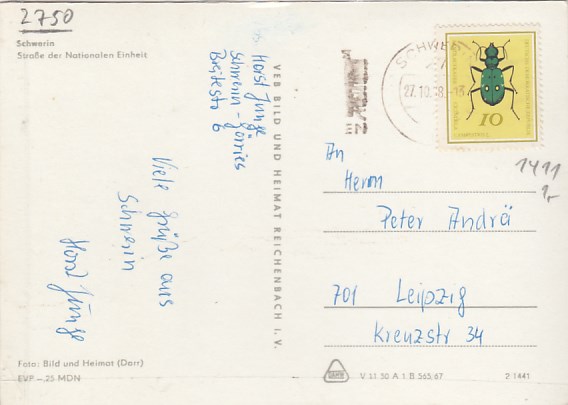 2750
Schwerin
Straße der Nationalen Einheit
Horst Junge
Schwerin - Görries
Breitestr 6
Viele Grüße aus
Schwerin
Horst Junge
VEB BILD UND HEIMAT REICHENBACH I. V.
SCHWERIN
27.10.68.-18
10
1411
1,-
An
Herrn
Peter Andrä
701 Leipzig
Kreuzstr 34
Foto: Bild und Heimat (Darr)
EVP -,25 MDN
V 11 50 A 1 B 565/67
2 1441